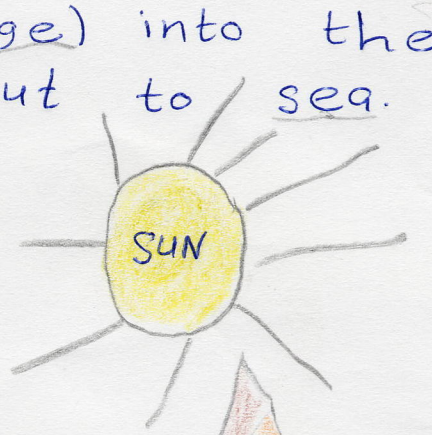 ge) into the
ut to sea.
SUN